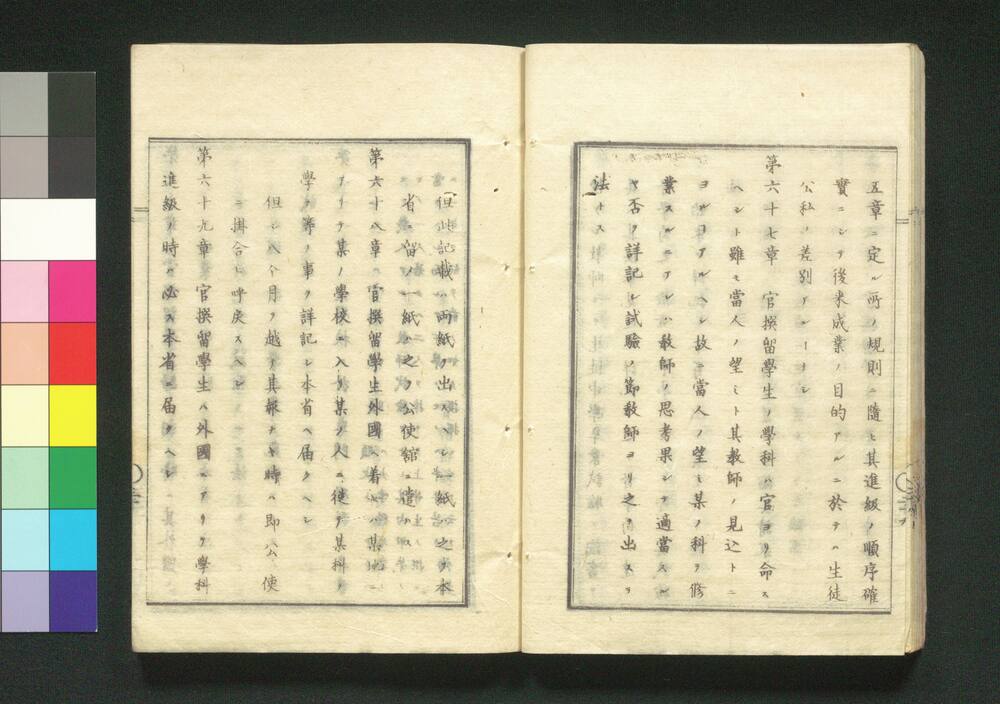 五章ニ定ル所ノ規則ニ隨ヒ其進級ノ順序確
實ニシテ後來成業ノ目的アルニ於テハ生徒
公私ノ差別アルヿナシ
第六十七章 官撰留學生ノ學科ハ官ヨリ命ス
ヘシト雖モ當人ノ望ミト其教師ノ見込トニ
ヨルヿアルヘシ故ニ當人ノ望ミ某ノ科ヲ修
業スルニアレハ教師ノ思考果シテ適當スル
ヤ否ヲ詳記シ試驗ノ節教師ヨリ之ヲ出スヲ
法トス
但此記載ハ両紙ヲ出スヘシ一紙ハ之ヲ本
省ニ留メ一紙ハ之ヲ公使館ニ遣ハス
第六十八章 官撰留學生外國ヘ着セハ某地ニ
アリテ某ノ學校ニ入リ某ノ人ニ從テ某科ヲ
學フ等ノ事ヲ詳記シ本省ヘ届クヘシ
但シ八ケ月ヲ越テ其報ナキ時ハ即公使
ニ掛合ヒ呼戻スヘシ
第六十九章 官撰留學生ハ外國ニアリテ學科
進級ノ時ハ必ス本省ニ届クヘシ